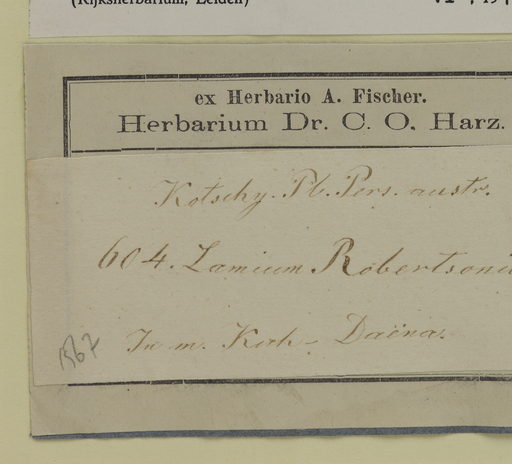 (Rijksherbarium, Leiden)
ex Herbario A. Fischer.
Herbarium Dr. C. O. Harz.
Kotschy. Pl. Pers. austr.
604. Lamium Robertsoni
In m. Kuh-Daëna.